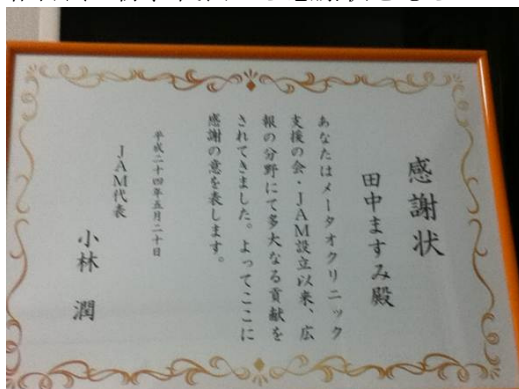 感謝状
田中ますみ殿
あなたはメータオクリニック
支援の会・JAM設立以来、広
報の分野にて多大なる貢献を
されてきました。よってここに
感謝の意を表します。
平成二十四年五月二十日
JAM代表
小林 潤